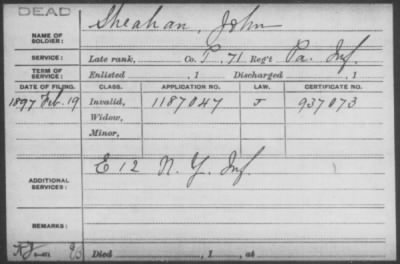 DEAD
NAME OF SOLDIER: Sheahan, John
SERVICE: Late rank, Co. P. 71 Reg't Pa. Inf.
TERM OF SERVICE: Enlisted , 1 Discharged , 1
DATE OF FILING. CLASS. APPLICATION NO. LAW. CERTIFICATE NO.
1897 Feb. 19 Invalid, 1187047 J 937073
Widow,
Minor,
ADDITIONAL SERVICES: E 12 N. Y. Inf.
REMARKS:
Died , 1 , at